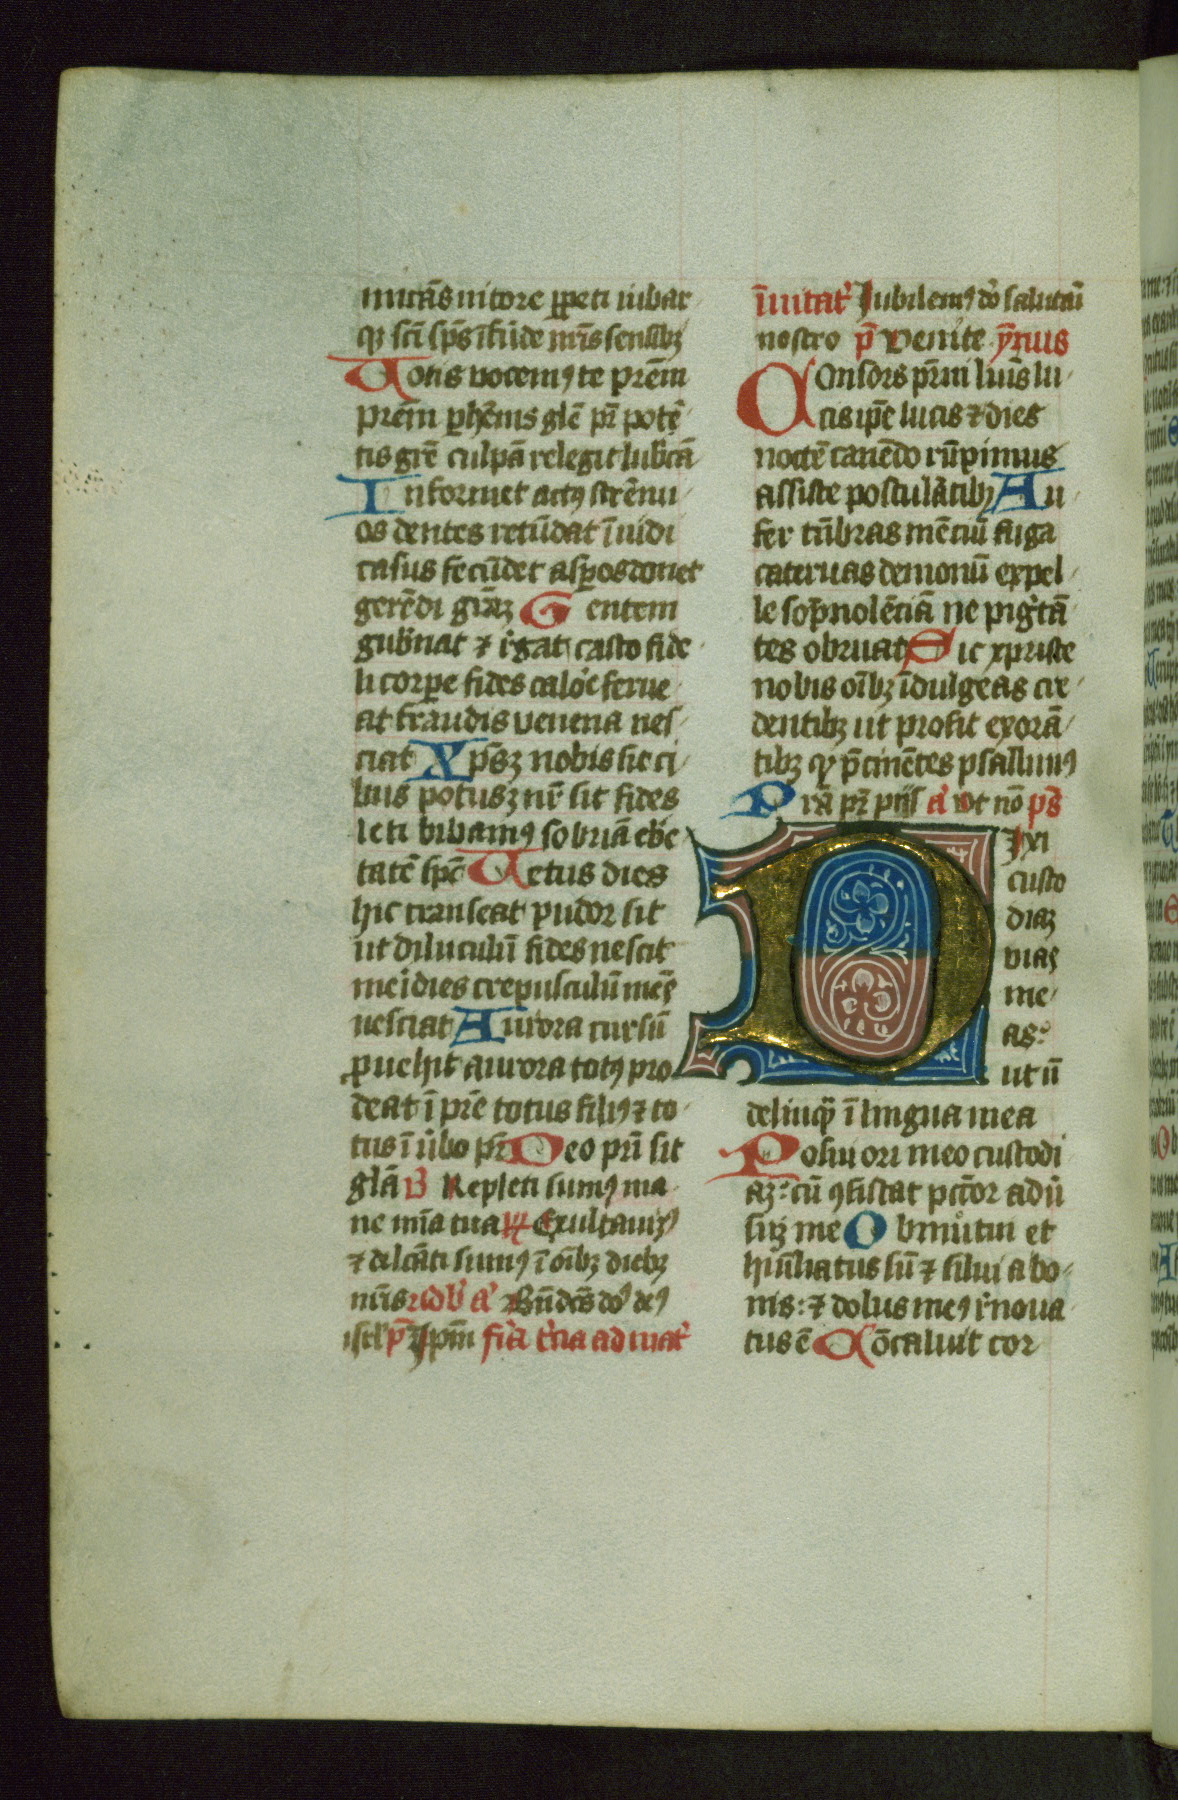 micãs nitore ꝑpeti iubar
qꝫ sc̃i sp̃s ĩfũde nr̃is sensibꝫ
Uotis vocemꝰ te prẽm
prẽm ꝑhẽnis gl̃e pr̃ potẽ
tis gr̃e culpã releget lub̾cã
Informet actꝰ strẽnu
os dentes retũdat ĩuidi
casus secũdet asꝑos donet
gerẽdi gr̃aꝫ Gentem
gub̾nat ⁊ r̾gat casto fide
li corꝑe fides caloꝛ̾e ferue
at fraudis venena nes
ciat Xp̃sꝫ nobis sit ci
bus potusꝫ nr̃ sit fides
leti bibamꝰ sobriã ebͥe
tatẽ sp̃c Letus dies
hic transeat pudor sit
ut diluculũ fides nescit
meͥdies crepusculũ mẽs
nesciat Aurora cursũ
ꝓuehit aurora totꝰ pro
deat ĩ pr̃e totus filiꝰ ⁊ to
tus ĩ u̾bo pr̃ Deo pr̃i sit
gl̃a ℣ Repleti sumꝰ ma
ne mĩa tua ℟ Exultauimꝰ
⁊ delc̃ati sumꝰ ĩ oĩbꝫ diebꝫ
nr̃is ad b̾ a̾ Bñdc̃s do̾ deꝰ
isrl̾ p̃ Ipm̃ fi̾a t̾cia ad mat̾
ĩuitat̾ Iubilemꝰ do̾ salutãi
nostro p̃ Venite ẏmus
Consors pr̃ni lumĩs lu
cis ip̃e lucis ⁊ dies
noctẽ canẽdo rũpimus
assiste postulãtibꝫ Au
fer tñbras mẽciũ fuga
cateruas demonũ expel
le sop̃nolẽciã ne pigr̾tã
tes obruat Sic xpriste
nobis oĩbꝫ ĩdulgeas cre
dentibꝫ ut prosit exorã
tibꝫ qꝫ p̃cinẽtes psallimꝰ
Pr̃a pr̃ piis̃ a̾ Ut nõ ps̃
Dixi
custo
diaꝫ
vias
me
as:
ut ñ
delinqã ĩ lingua mea
Posui ori meo custodi
aꝫ: cũ ꝯsistat pcc̃or adu̾
suꝫ me Obmutui et
hũiliatus sũ ⁊ silui a bo
nis: ⁊ dolus meꝰ r̾noua
tus ẽ Cõcaluit cor